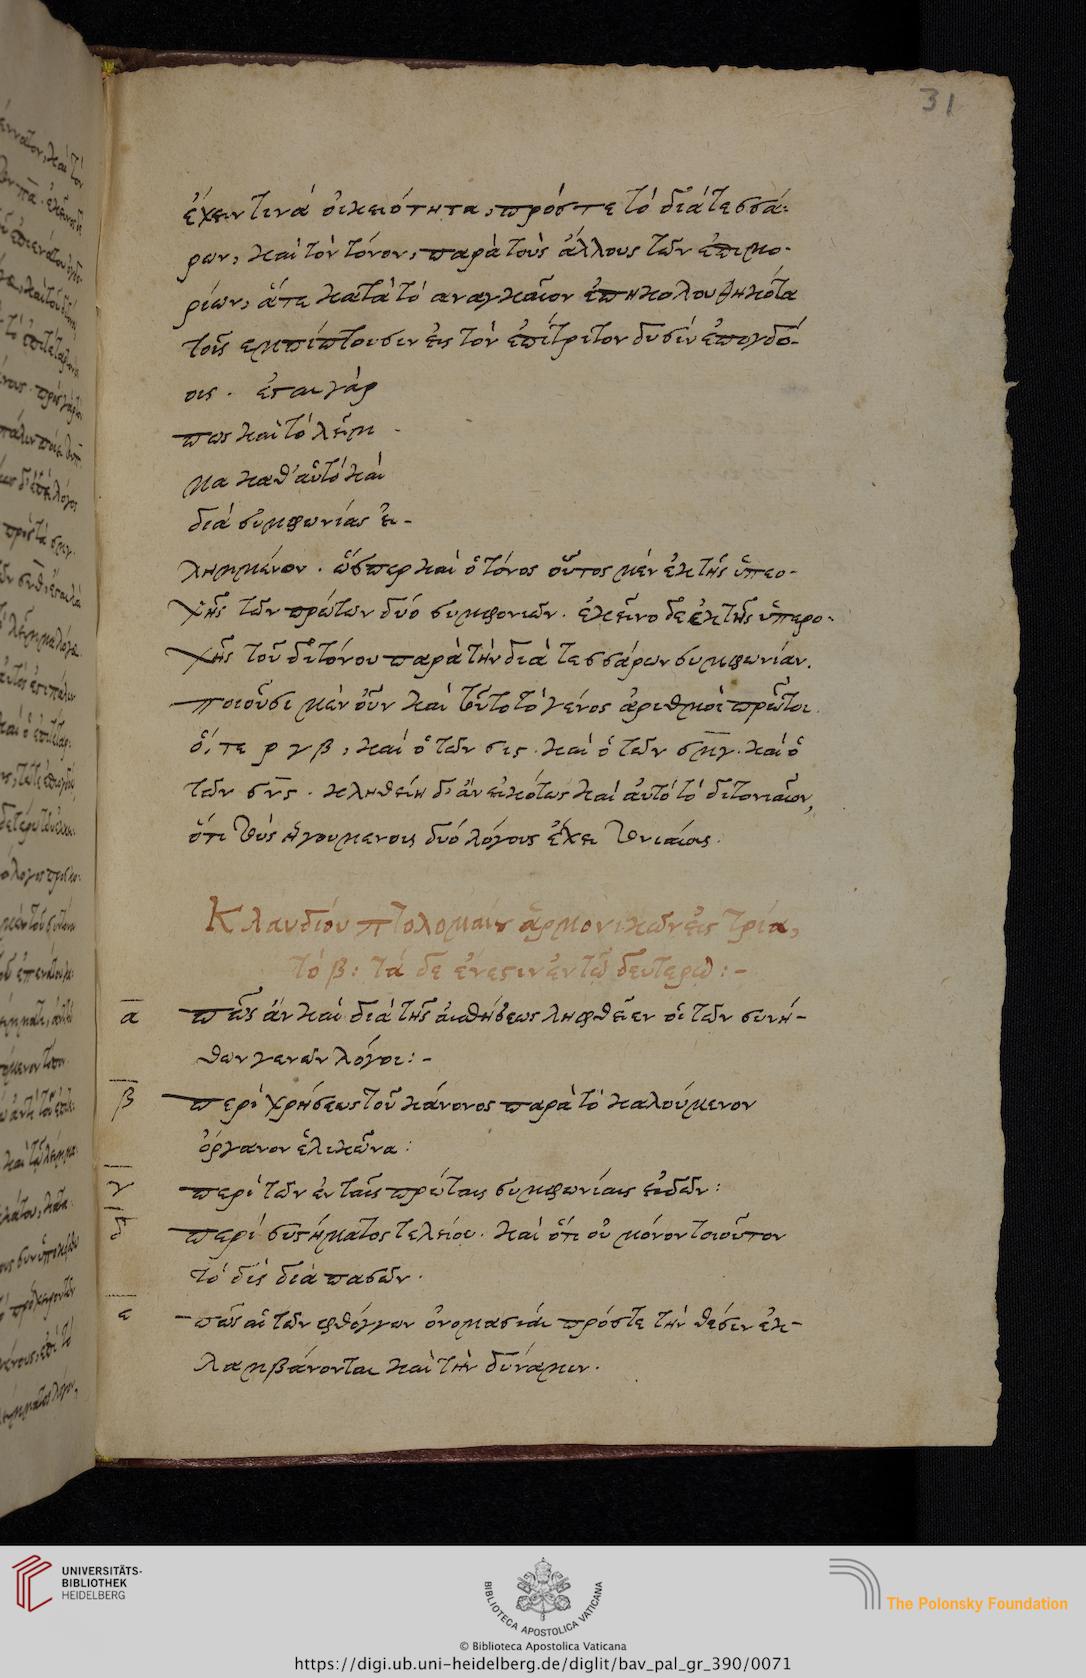 31
ἔχειν τινά οἰκειότητα, πρόστε τό διάτεσσά-
ρων, καί τόν τόνον, παρὰ τοὺς ἄλλους τῶν ἐπιμο-
ρίων, ἅτε κατὰ τό αναγκαῖον ἐπηκολουθηκότα
τοῖς εμπίπτουσιν εἰς τὸν ἐπίτριτον δυσίν ἐπογδό-
οις . ἐπεὶ γάρ
πως καὶ τὸ λεῖμ -
μα καθ' αὑτό καὶ
διά συμφωνίας εἰ-
λημμένον . ὥσπερ καί ὁ τόνος οὗτος μέν ἐκ τῆς ὑπεο-
χῆς τῶν πρώτων δυό συμφονιῶν . ἐκεῖνο δε ἐκ τῆς ὑπερο-
χῆς τοῦ διτόνου παρὰ τὴν διὰ τεσσάρων συμφωνίαν.
ποιοῦσι μὲν οὖν καί τοῦτο τὸ γένος ἀριθμοί πρῶτοι.
ὅ, τε ρ γ β , καί ὁ τῶν σις . καί ὁ τῶν σμγ . καί ὁ
τῶν σνς . κληθείη δ' ἄν εἰκότως καί αὐτό τό διτονιαῖον,
ὅτι τούς ἡγουμένοις δυό λόγους ἔχει τονιαίους.
Κλαυδίου πτολομαίου ἁρμονικῶν εἰς τρία,
τό β : τά δε ἔνεστιν ἐν τῶ δευτέρω : -
α πῶς ἄν καί διὰ τῆς αἰσθήσεως ληφθεῖεν οἱ τῶν συνή-
θων γενῶν λόγοι : -
β περί χρήσεως τοῦ κάνονος παρὰ τό καλούμενον
ὄργανον ἑλικῶνα :
γ περί τῶν ἐν ταῖς πρώταις συμφωνίαις εἰδῶν :
δ περί συστήματος τελείου . καί ὅτι οὐ μόνον τοιοῦτον
τό δίς διά πασῶν .
ε πῶς αἱ τῶν φθόγγων ὀνομασίαι πρόστε τὴν θέσιν ἐκ-
λαμβάνονται καὶ τὴν δύναμιν .
UNIVERSITÄTS-
BIBLIOTHEK
HEIDELBERG
BIBLIOTECA APOSTOLICA VATICANA
The Polonsky Foundation
© Biblioteca Apostolica Vaticana
https://digi.ub.uni-heidelberg.de/diglit/bav_pal_gr_390/0071